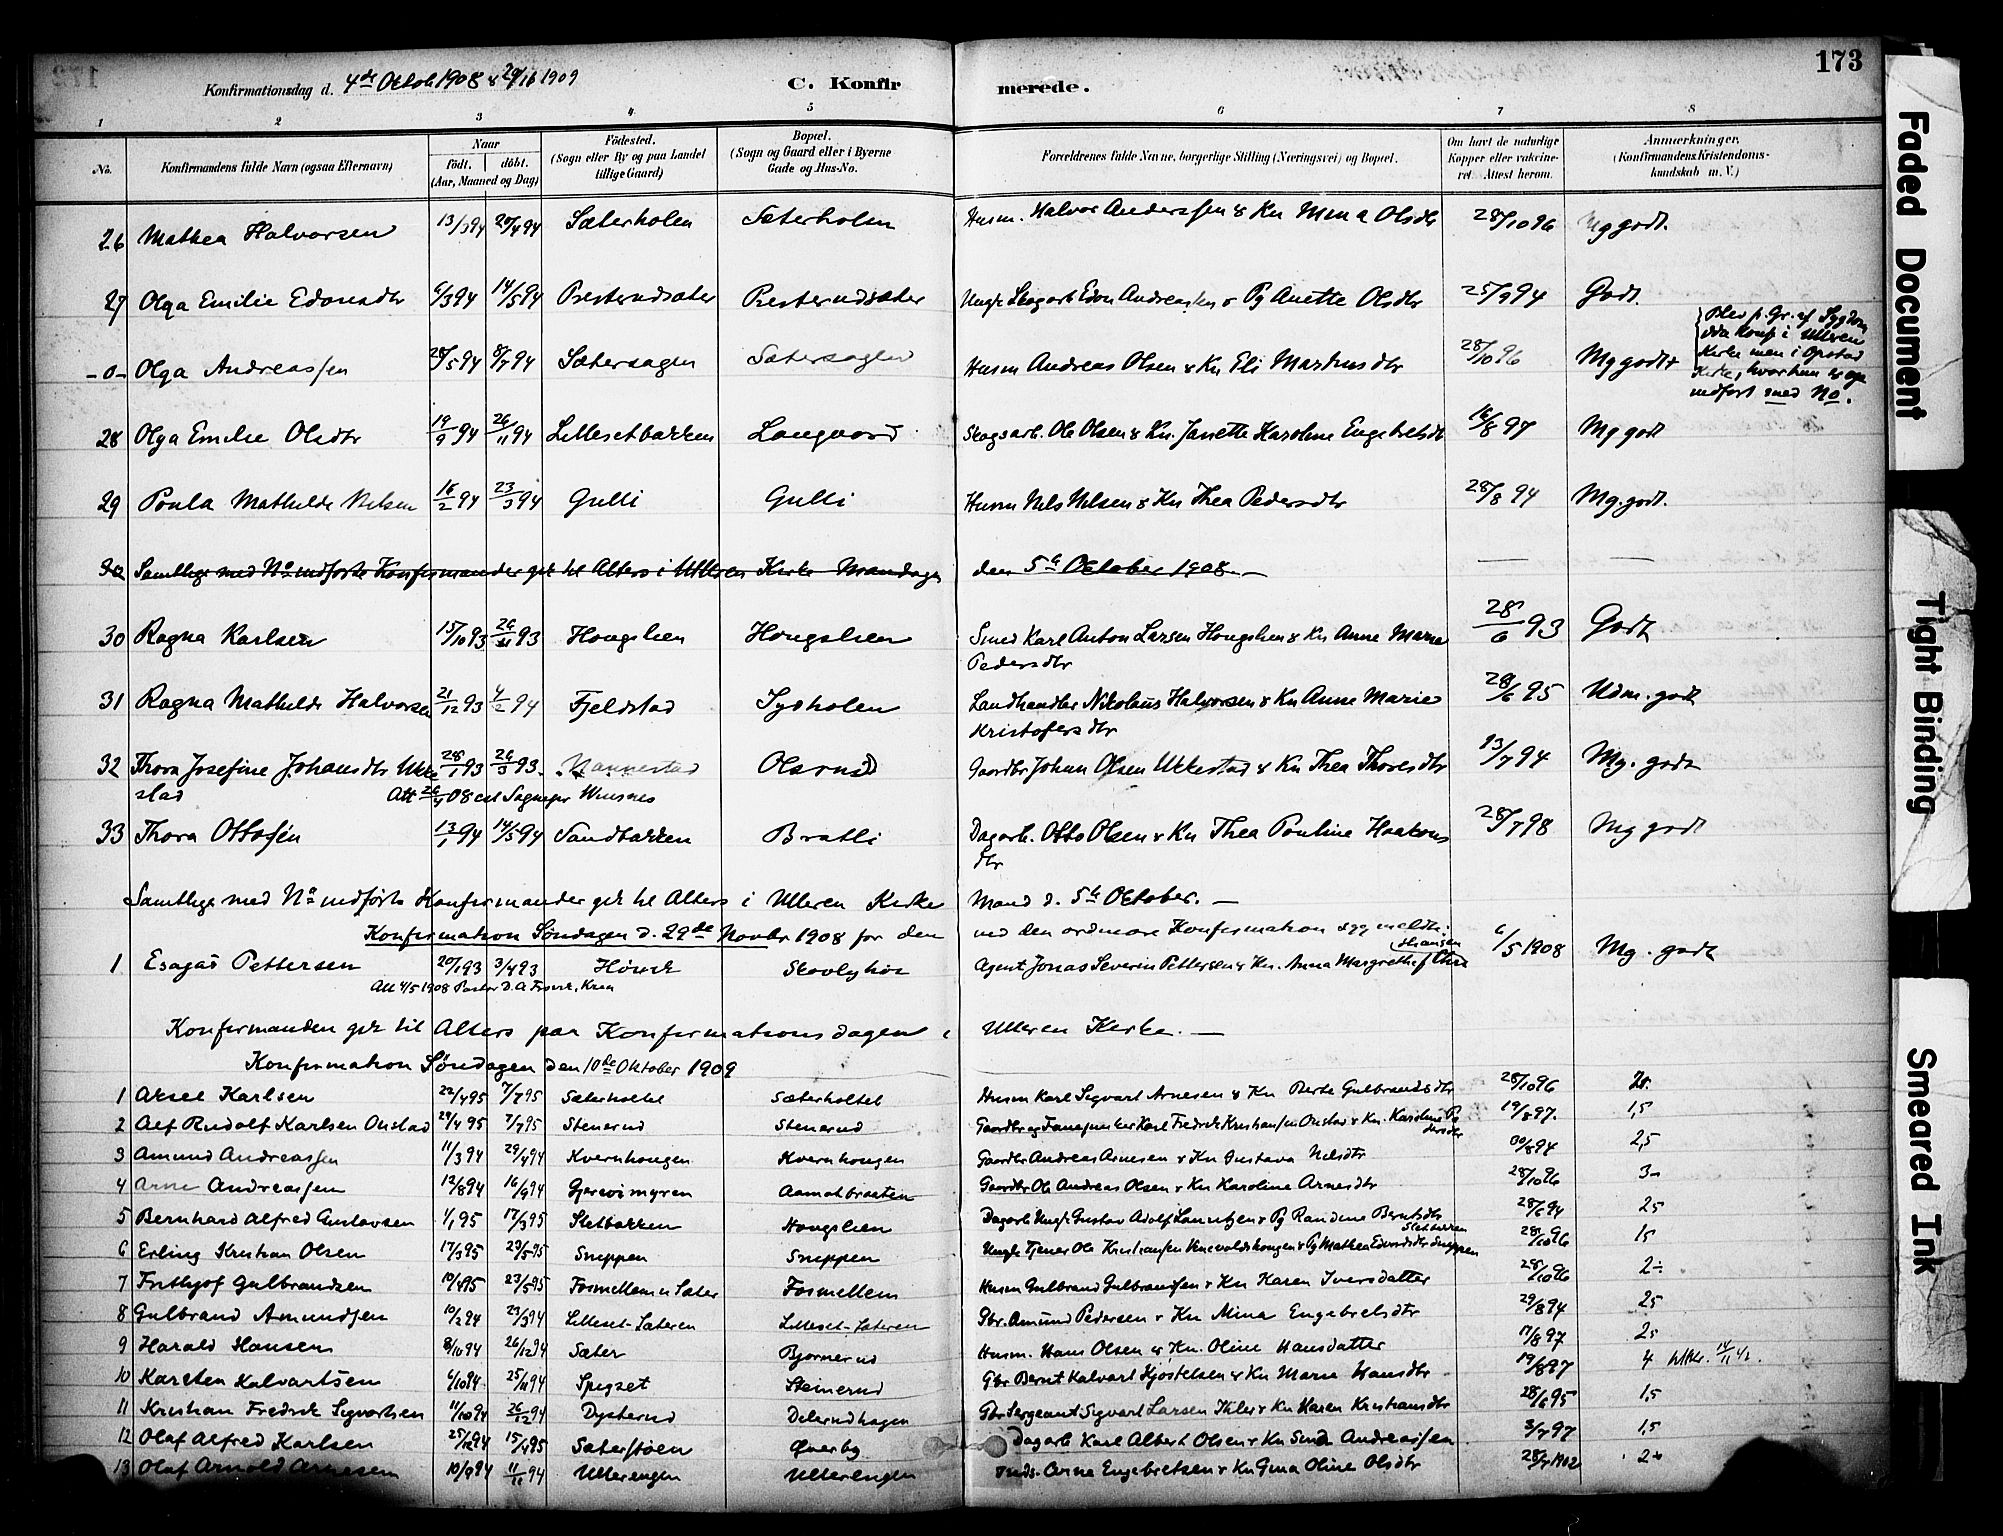 173
Konfirmationsdag d. 4de Octob 1908 & 1909
C. Konfirmerede.
1 2 3 4 5 6 7 8
No. Konfirmandens fulde Navn (ogsaa Efternavn) Naar født. døbt. (Aar, Maaned og Dag) Fødested. (Sogn eller By og paa Landet tillige Gaard) Bopæl. (Sogn og Gaard eller i Byerne Gade og Hus-No. Forældrenes fulde Navne, borgerlige Stilling (Næringsvei) og Bopæl. Om havt de naturlige Kopper eller vaccineret. Attest herom. Anmerkninger. (Konfirmandens Kristendomskundskab m. V.)
26 Mathea Halvorsen Sæterholen Sæterholen Husm. Halvor Anderssen & Kn Mina Olsdtr 28/10 96 Mg godt.
27 Olga Emilie Edonsdtr 6/3 94 14/5 94 Presterudsæter Presterudsæter Ungk Skogarb Edon Andreassen & Pg Anette Olsdtr 25/9 94 Godt.
-o- Olga Andreassen 28/5 94 8/7 94 Sætersagen Sætersagen Husm Andreas Olsen & Kn Eli Martinsdtr 28/10 96 Mg godt
Blev p. Gr. af Sygdom
ikke konf i Ulleren
Kirke men i Opstad
Kirke, hvor hun er og
indført med No.
28 Olga Emilie Olsdtr 19/9 94 26/11 94 Lillesetbakken Langvard Skogsarb. Ole Olsen & Kn. Janette Karoline Engebretsdtr 16/8 97 Mg godt
29 Poula Mathilde Nilsen 16/2 94 23/3 94 Gulli Gulli Husm Nils Nilsen & Kn Thea Pedersdtr 28/8 94 Mg. godt.
30 Samtlige med No indførte Konfirmander gik til Alters i Ulleren Kirke Mandagen den 5te October 1908.
30 Ragna Karlsen 15/10 93 26/11 93 Hougslien Hougslien Smed Karl Anton Larsen Hougslien & Kn Anne Marie
Pedersdtr 28/6 93 Godt
31 Ragna Mathilde Halvorsen 21/12 93 4/2 94 Fjeldstad Sydholen Landhandler Nikolaus Halvorsen & Kn Anne Marie
Kristofersdtr 28/6 95 Udm. godt
32 Thora Josefine Johansdtr Ukke
stad 28/1 93 26/3 93. Nannestad Olsrud Gaardbr Johan Olsen Ukkestad & Kn Thea Thoresdtr 13/7 94 Mg. godt
33 Thora Ottosen 13/1 94 14/5 94 Sandbakken Bratli Dagarb. Otto Olsen & Kn Thea Pouline Haakons
dtr 28/7 98 Mg godt
Samtlige med No indførte Konfirmander gik til Alters i Ulleren Kirke Mand d. 5te October.
Konfirmation Søndagen d. 29de Novbr 1908 for den ved den ordinære Konfirmation sygmeldte:
1 Esaias Pettersen 20/1 93 3/4 93 Skovlyhøi Agent Jonas Severin Pettersen & Kn. Anna Margrethe 6/5 1908 Mg. godt
Konfirmanden gik til Alters paa Konfirmationsdagen i Ulleren Kirke.
Konfirmation Søndagen den 10de Oktober 1909
1 Aksel Karlsen 22/4 95 7/7 95 Sæterholtet Sæterholtet Husm Karl Sigvart Arnesen & Kn Berte Gulbrandsdtr 28/10 96
2 Alf Rudolf Karlsen Onstad 29/4 95 7/7 95 Stenerud Stenerud Karl Fredrik Kristiansen Onstad & Kn. Karoline Pe
dersdtr 19/8 97. 1,5
3 Amund Andreassen 11/3 94 29/4 94 Kvernhougen Kvernhougen Gaardbr Andreas Arnesen & Kn Gustava Nilsdtr 30/8 94 2,5
4 Arne Andreassen 12/8 94 16/9 94 Gjerevimyren Aamotbraaten Gaardbr Ole Andreas Olsen & Kn Karoline Arnesdtr 28/10 96
5 Bernhard Alfred Gustavsen 4/1 95 17/3 95 Sletbakken Hougslien Dagarb Ungk Gustav Adolf Lauritzen & Pg Randine Berntsdtr
Sletbakken 28/6 94 25
6 Erling Kristian Olsen 17/3 95 23/5 95 Sneppen Sneppen 28/10 96 15
7 Frithjof Gulbrandsen 10/4 95 23/5 95 Fosmellem Fosmellem Husm Gulbrand Gulbrandsen & Kn Karen Iversdatter 28/10 96 2÷
8 Gulbrand Amundsen 10/2 94 23/3 94 Lilleset-Sæteren Lilleset-Sæteren Gbr. Amund Pedersen & Kn Mina Engebretsdtr 29/8 94 25
9 Harald Hansen 8/10 94 26/12 94 Sæter Bjørnerud Husm. Hans Olsen & Kn. Oline Hansdatter 17/8 97 25
10 Karsten Kalvartsen 6/10 94 25/11 94 Spigset Steinerud Gbr Bernt Kalvart Kjøstelsen & Kn Marie Hansdtr 19/8 97 4
11 Kristian Fredrik Sigvartsen 11/10 94 26/12 94 Dysterud Delerudhagen Gbr Sergeant Sigvart Larsen & Kn Karen Kristiansdtr 28/6 95 1,5
12 Olaf Alfred Karlsen 25/12 94 15/4 95 Sæterstøen Øverby Dagarb Karl Albert Olsen & Kn Andreassen 3/7 97 1,5
13 Olaf Arnold Arnesen 10/9 94 11/11 94 Ullerengen Ullerengen Inds. Arne Engebretsen & Kn Gina Oline Olsdtr 28/7 1902
Faded Document
Tight Binding
Smeared Ink